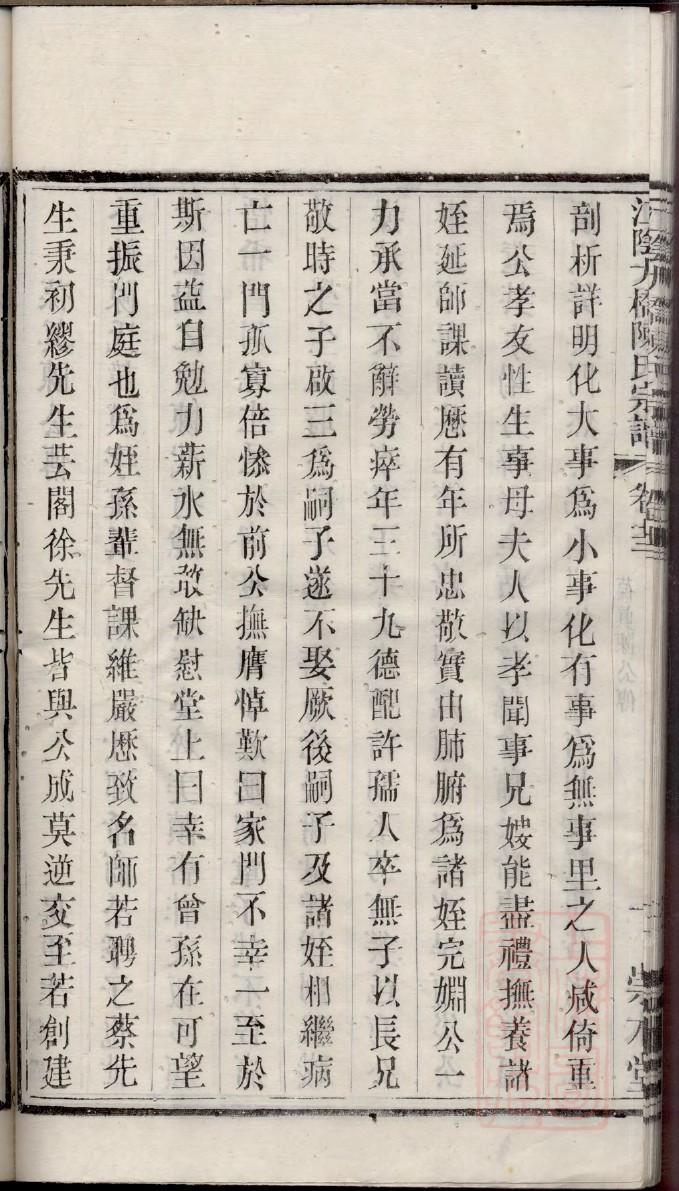 江陰九橋陳氏宗譜 卷十三 崇本堂
剖析詳明化大事爲小事化有事爲無事里之人咸倚重
焉公孝友性生事母夫人以孝聞事兄嫂能盡禮撫養諸
姪延師課讀歷有年所忠敬實由肺腑爲諸姪完婣公一
力承當不辭勞瘁年三十九德配許孺人卒無子以長兄
敬時之子啟三爲嗣子遂不娶厥後嗣子及諸姪相繼病
亡一門孤寡倍慘於前公撫膺悼歎曰家門不幸一至於
斯因益自勉力薪水無敢缺慰堂上曰幸有曾孫在可望
重振門庭也爲姪孫輩督課維嚴歷致名師若聘之蔡先
生秉初繆先生芸閣徐先生皆與公成莫逆交至若創建